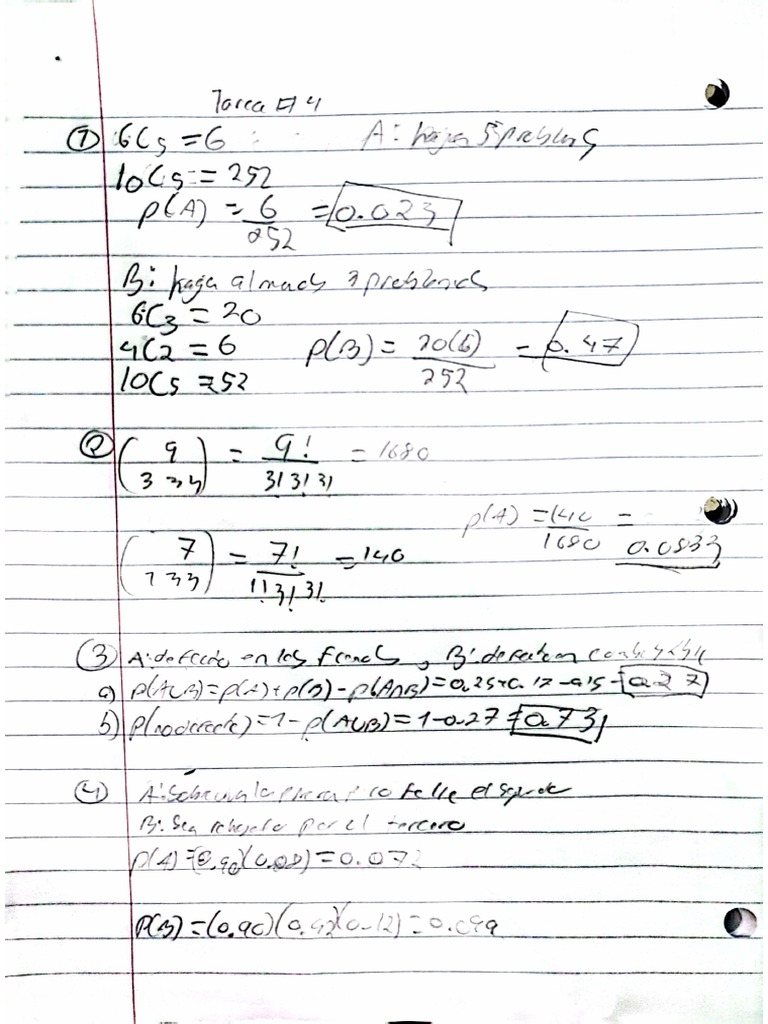 Tarea #4
① 6C5 = 6 A: haga 5 problems
10C5 = 252
P(A) = 6/252 = 0.023
B: haga al menos 3 problemas
6C3 = 20
4C2 = 6 P(B) = 20(6)/252 = 0.47
10C5 = 252
② (9 / 3 3 3) = 9!/3!3!3! = 1680
P(A) = 140/1680 = 0.0833
(7 / 1 3 3) = 7!/1!3!3! = 140
③ A: defecto en los frenos, B:
a) P(A∪B) = P(A) + P(B) - P(A∩B) = 0.25+0.17-0.15 = 0.27
b) P(no defecto) = 1 - P(A∪B) = 1-0.27 = 0.73
④ A: la primera pero falle el segundo
B: Sea por el tercero
P(A) = (0.90)(0.08) = 0.072
P(B) = (0.90)(0.92)(0.12) = 0.099